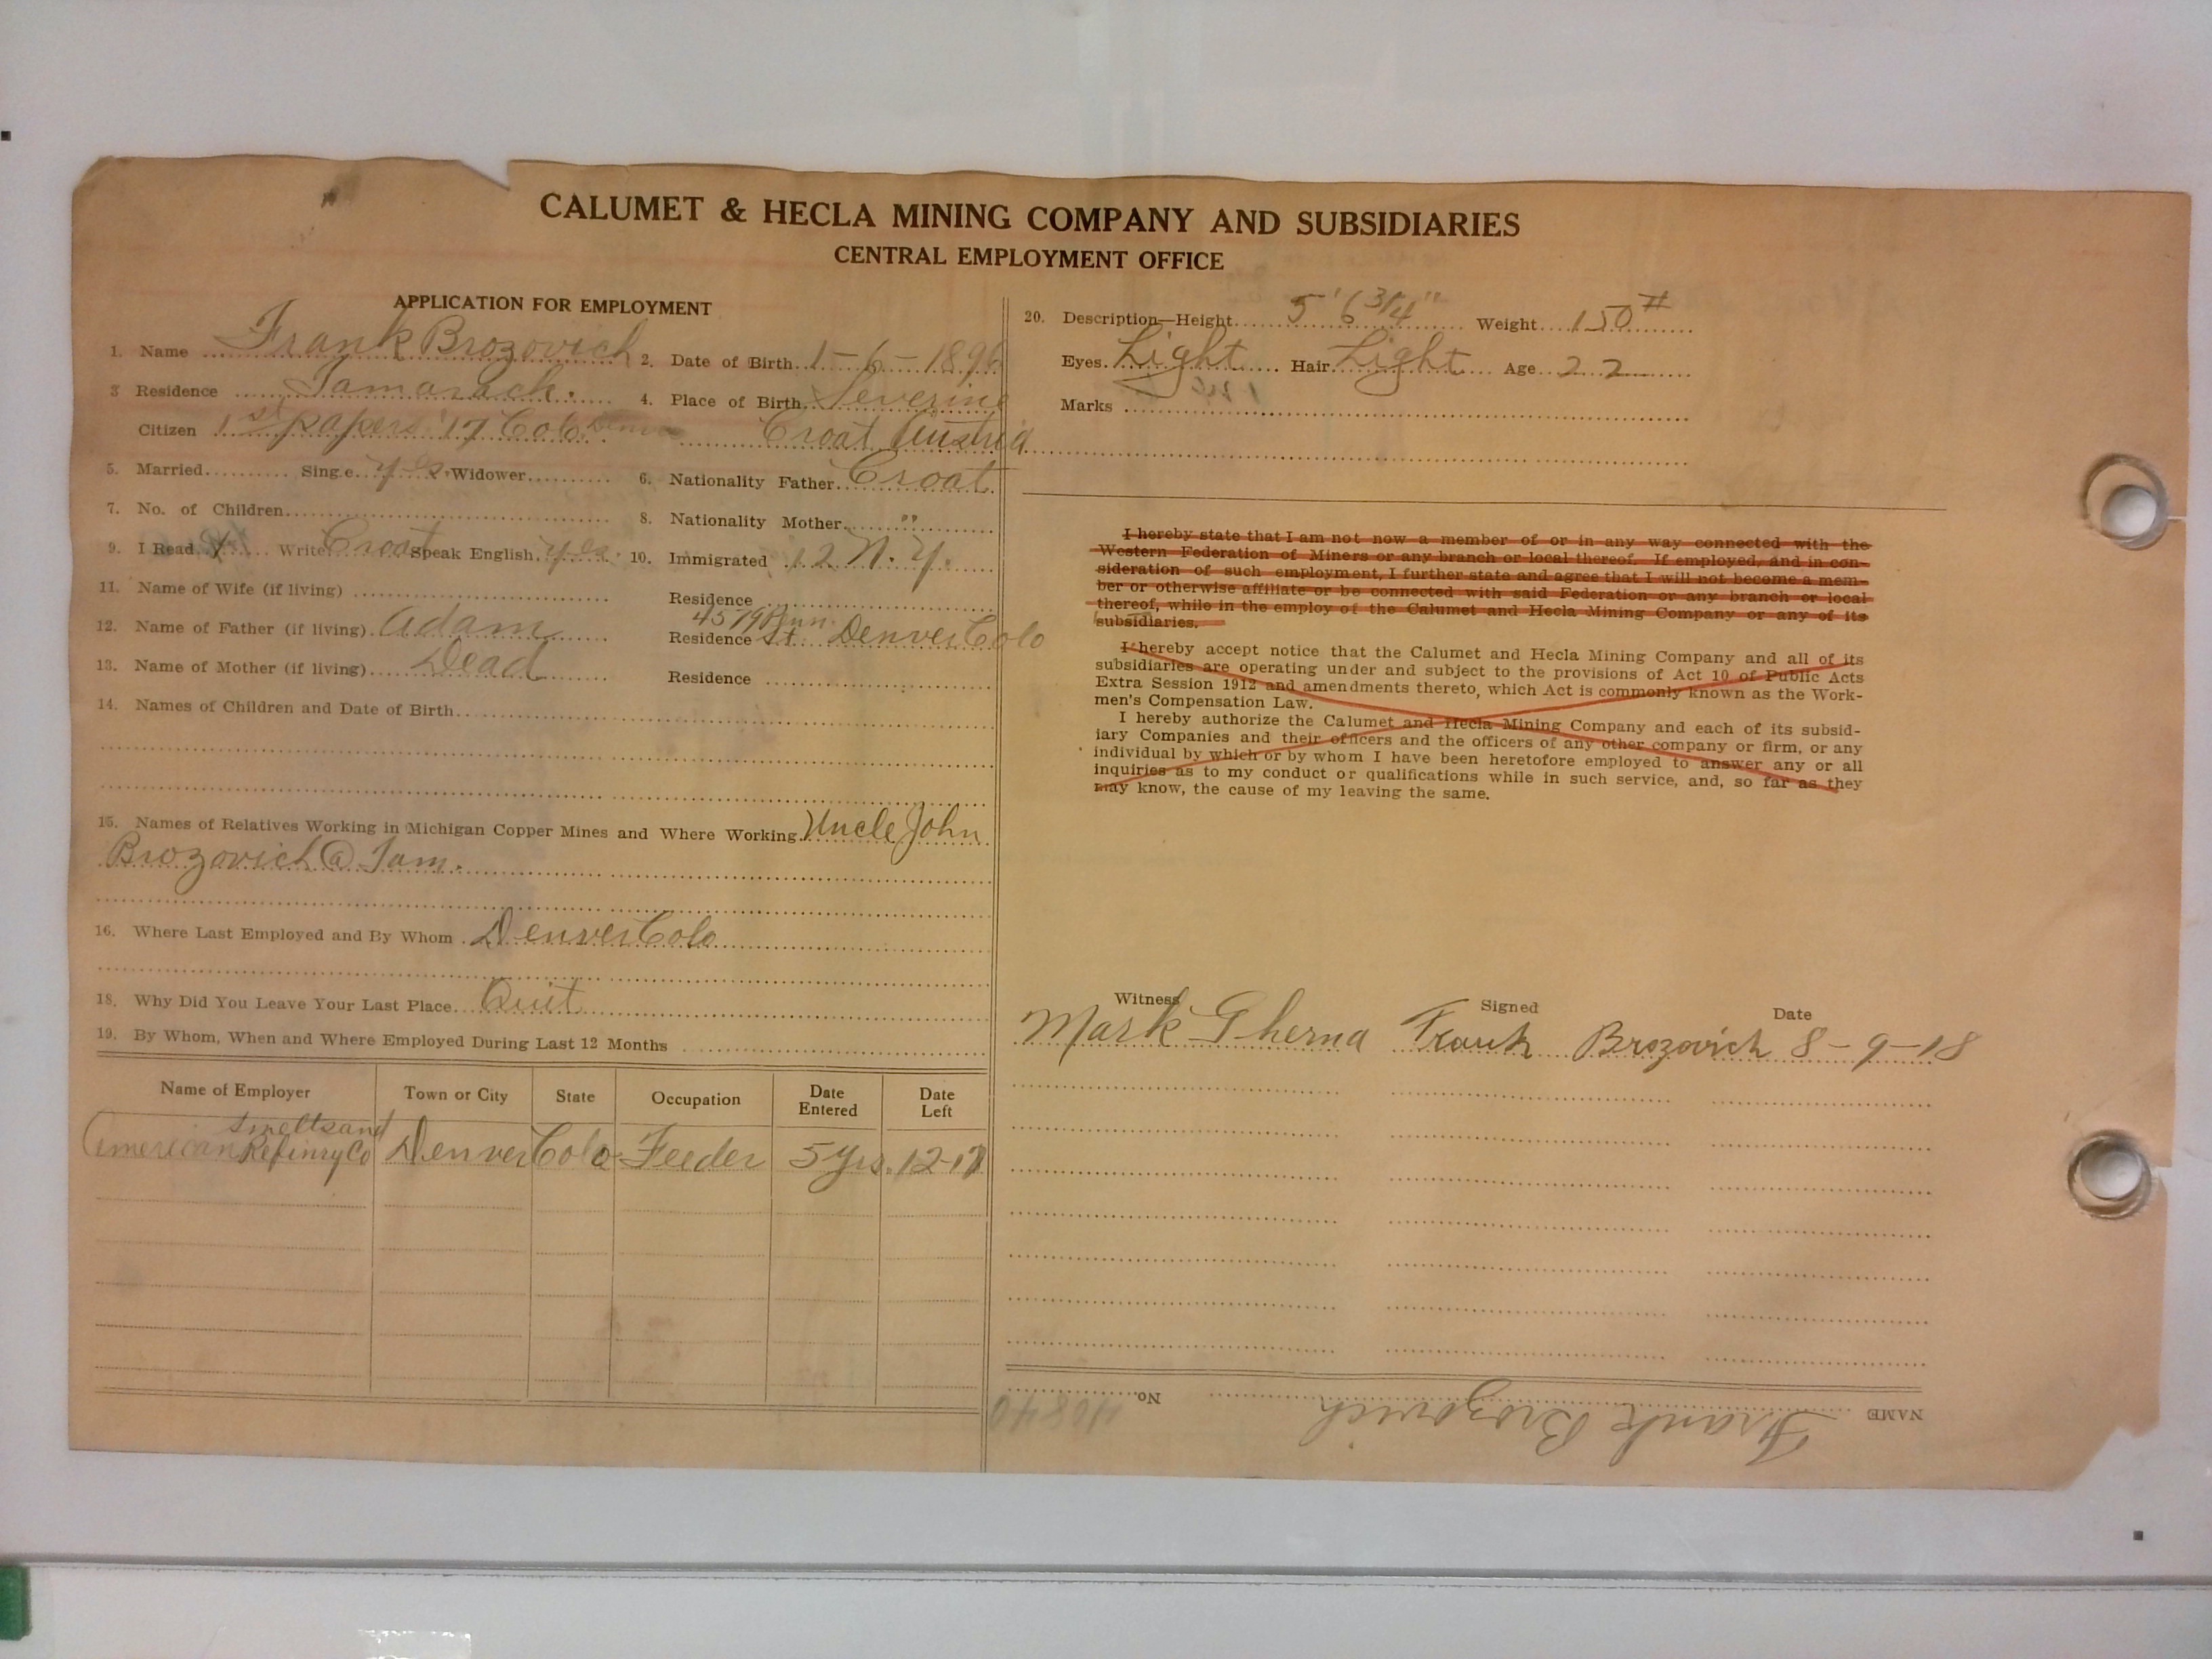 CALUMET & HECLA MINING COMPANY AND SUBSIDIARIES
CENTRAL EMPLOYMENT OFFICE
APPLICATION FOR EMPLOYMENT
1. Name Frank Brozovich 2. Date of Birth 1-6-1896
3 Residence Tamarack. 4. Place of Birth Severine
Citizen 1st papers '17 Colo Croat Austria
5. Married Single yes Widower 6. Nationality Father Croat
7. No. of Children 8. Nationality Mother "
9. I Read Write Croat Speak English yes. 10. Immigrated 12 N.Y.
11. Name of Wife (if living) Residence
12. Name of Father (if living) Adam Residence 4579 Penn. St. Denver Colo
13. Name of Mother (if living) Dead Residence
14. Names of Children and Date of Birth
15. Names of Relatives Working in Michigan Copper Mines and Where Working Uncle John
Brozovich @ Tam.
16. Where Last Employed and By Whom Denver Colo
18. Why Did You Leave Your Last Place Quit
19. By Whom, When and Where Employed During Last 12 Months
Name of Employer Town or City State Occupation Date Entered Date Left
American Smelts and Refinry Co Denver Colo Feeder 5 yrs. 12-17
20. Description—Height 5' 6 3/4" Weight 150#
Eyes Light Hair Light Age 22
Marks
I hereby state that I am not now a member of or in any way connected with the
Western Federation of Miners or any branch or local thereof. If employed, and in con-
sideration of such employment, I further state and agree that I will not become a mem-
ber or otherwise affiliate or be connected with said Federation or any branch or local
thereof, while in the employ of the Calumet and Hecla Mining Company or any of its
subsidiaries.
I hereby accept notice that the Calumet and Hecla Mining Company and all of its
subsidiaries are operating under and subject to the provisions of Act 10 of Public Acts
Extra Session 1912 and amendments thereto, which Act is commonly known as the Work-
men's Compensation Law.
I hereby authorize the Calumet and Hecla Mining Company and each of its subsid-
iary Companies and their officers and the officers of any other company or firm, or any
individual by which or by whom I have been heretofore employed to answer any or all
inquiries as to my conduct or qualifications while in such service, and, so far as they
may know, the cause of my leaving the same.
Witness Signed Date
Mark Gherna Frank Brozovich 8-9-18
NAME Frank Brozovich No. 40840